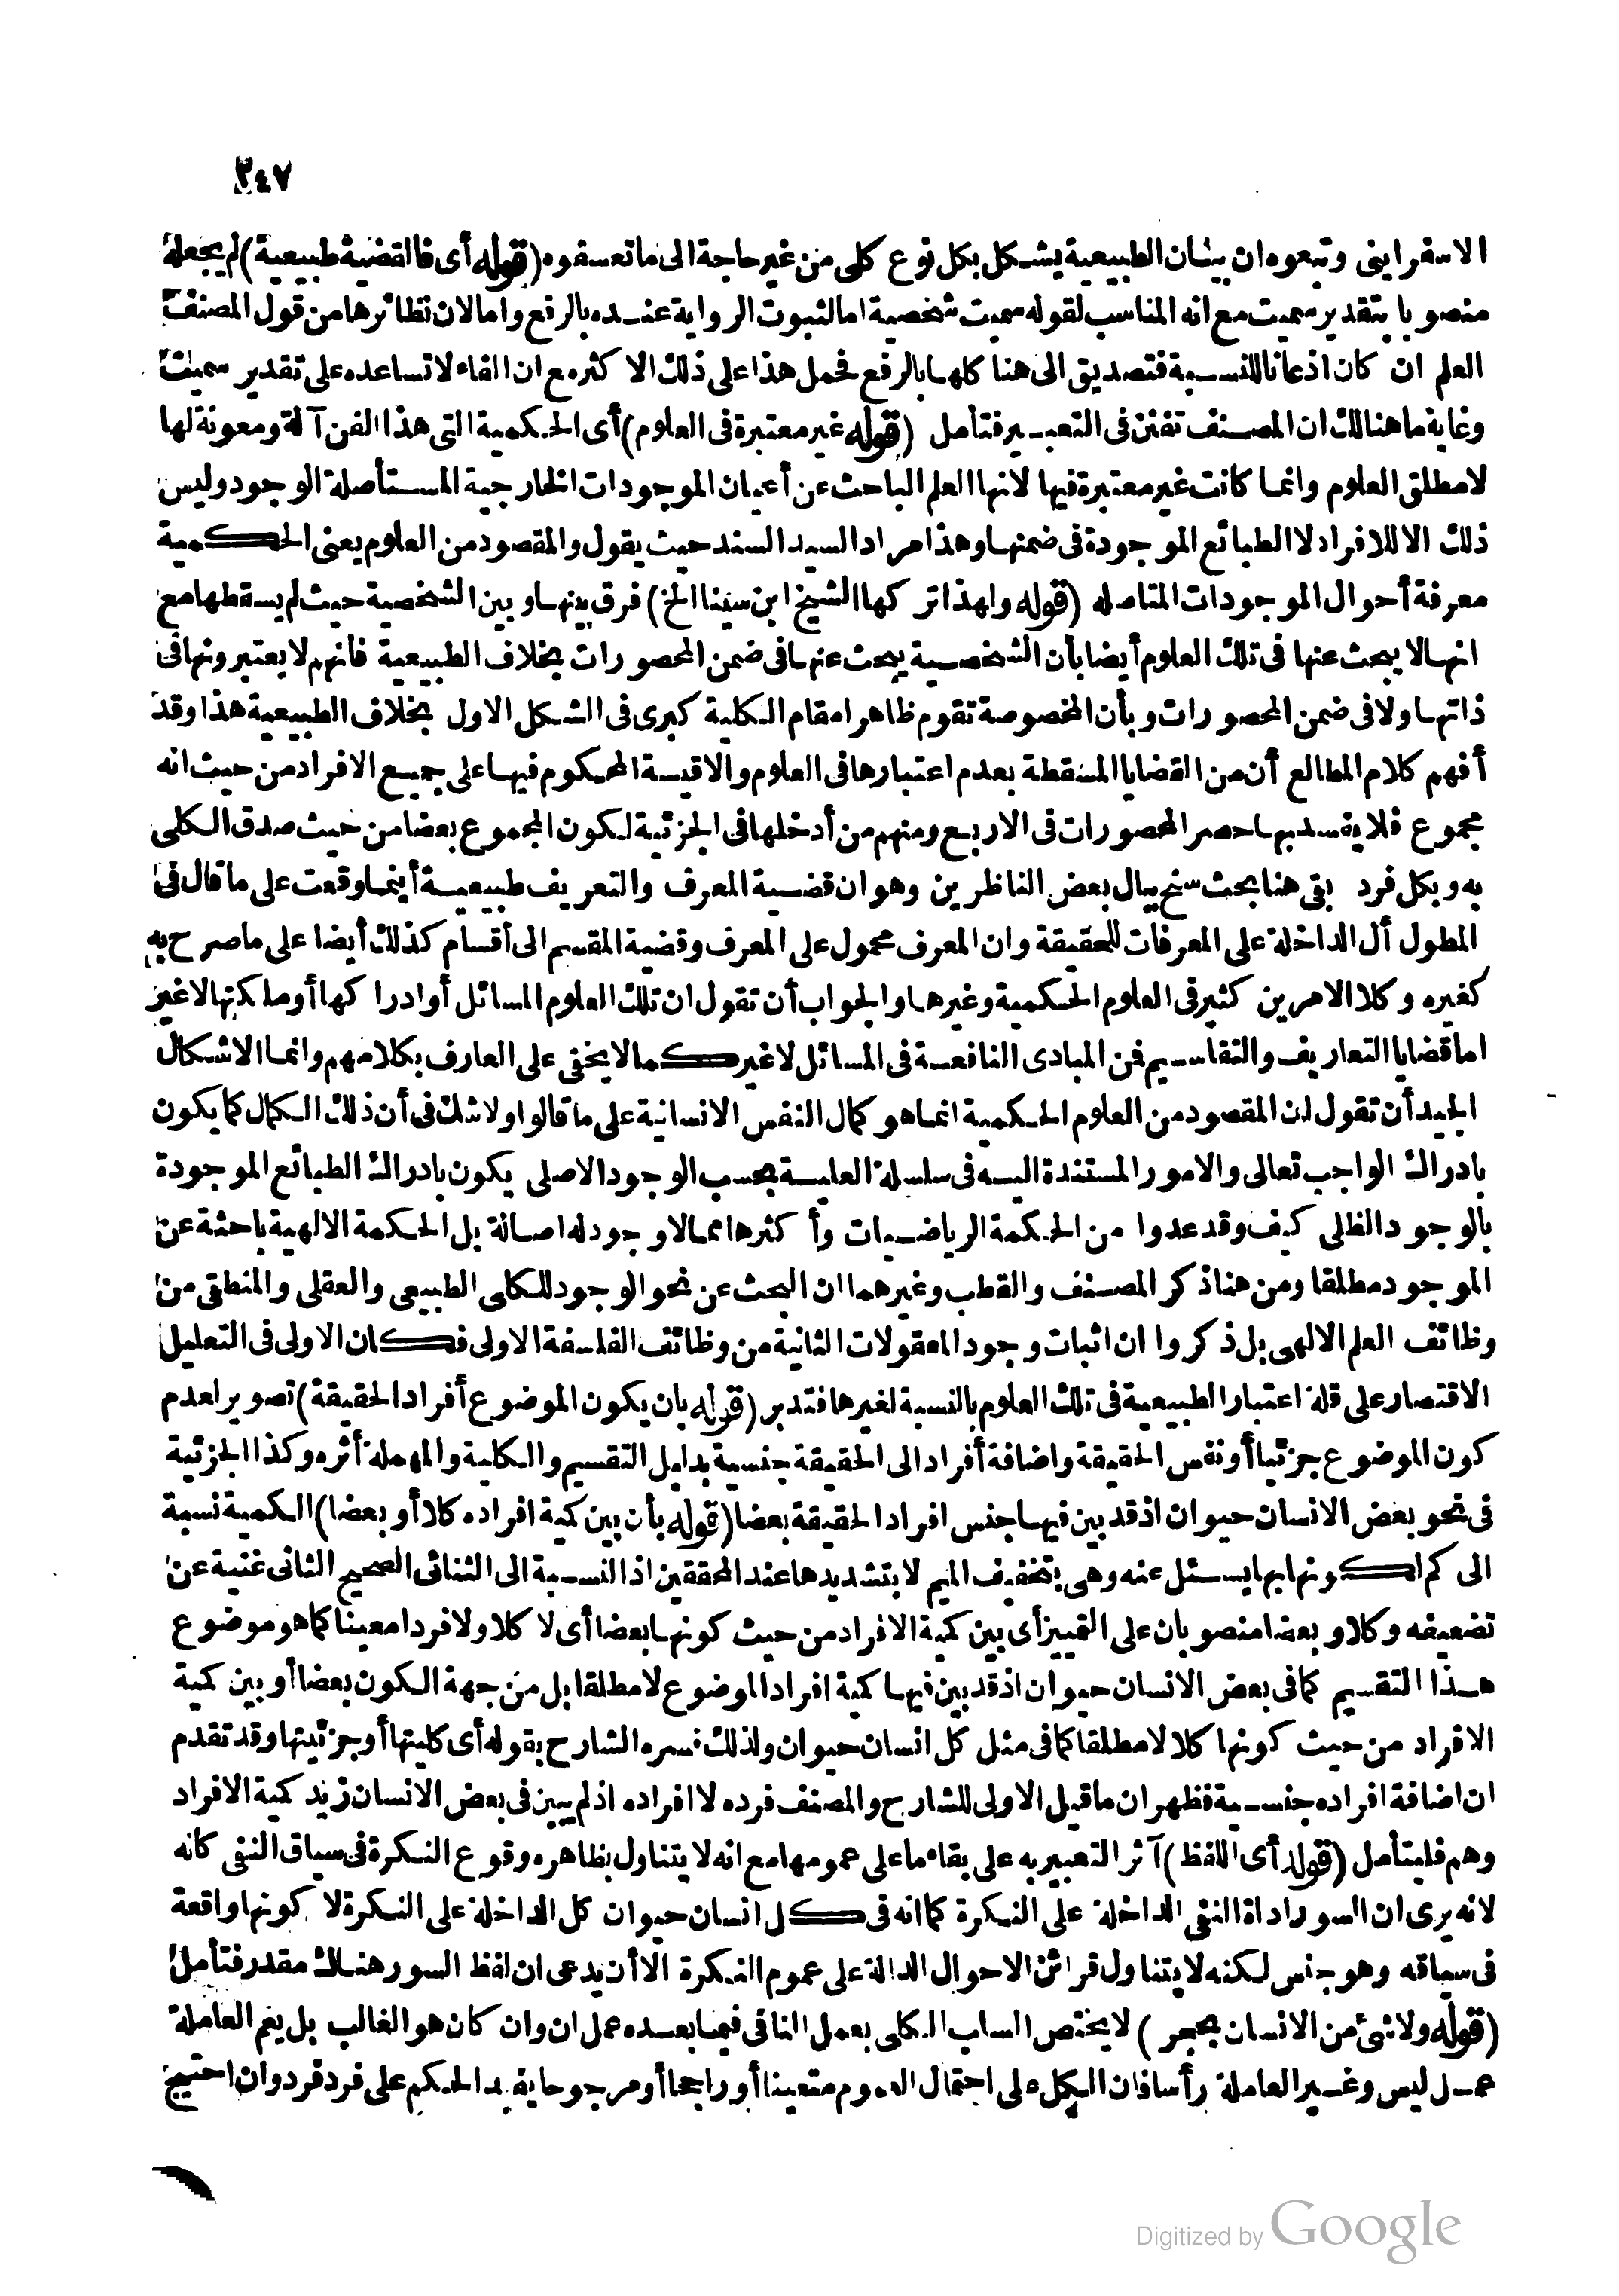 ٣٤٧
الاسفراينى وتبعوه ان بيان الطبيعية يشكل بكل نوع كلى من غير حاجة الى ما تعسفوه (قوله أى فالقضية طبيعية) لم يجعله
منصوبا بتقدير سميت مع انه المناسب لقوله سميت شخصية اما لثبوت الرواية عنده بالرفع واما لان نظائرها من قول المصنف
العلم ان كان اذعانا للنسبة فتصديق الى هنا كلها بالرفع فحمل هذا على ذلك الاكثر مع ان الفاء لا تساعده على تقدير سميت
وغاية ما هنالك ان المصنف تفنن فى التعبير فتأمل (قوله غير معتبرة فى العلوم) أى الحكمية التى هذا الفن آلة ومعونة لها
لا مطلق العلوم وانما كانت غير معتبرة فيها لانها العلم الباحث عن أعيان الموجودات الخارجية المستأصلة الوجود وليس
ذلك الا للافراد لا الطبائع الموجودة فى ضمنها وهذا مراد السيد السند حيث يقول والمقصود من العلوم يعنى الحكمية
معرفة أحوال الموجودات المتاصله (قوله ولهذا تركها الشيخ ابن سينا الخ) فرق بينها وبين الشخصية حيث لم يسقطها مع
انها لا يبحث عنها فى تلك العلوم أيضا بأن الشخصية يبحث عنها فى ضمن المحصورات بخلاف الطبيعية فأنهم لا يعتبرونها فى
ذاتها ولا فى ضمن المحصورات وبأن المخصوصة تقوم ظاهرا مقام الكلية كبرى فى الشكل الاول بخلاف الطبيعية هذا وقد
أفهم كلام المطالع أن من القضايا المسقطة بعدم اعتبارها فى العلوم والاقيسة المحكوم فيها على جميع الافراد من حيث انه
مجموع فلا يفسد بها حصر المحصورات فى الاربع ومنهم من أدخلها فى الجزئية لكون المجموع بعضا من حيث صدق الكلى
به وبكل فرد بقى هنا بحث سنح ببال بعض الناظرين وهو ان قضية المعرف والتعريف طبيعية أينما وقعت على ما قال فى
المطول أل الداخلة على المعرفات للحقيقة وان المعرف محمول على المعرف وقضية المقسم الى أقسام كذلك أيضا على ما صرح به
كغيره وكلا الامرين كثير فى العلوم الحكمية وغيرها والجواب أن تقول ان تلك العلوم المسائل أو ادراكها أو ملكتها لا غير
اما قضايا التعاريف والتقاسيم فمن المبادى النافعة فى المسائل لا غير كما لا يخفى على العارف بكلامهم وانما الاشكال
الجيد أن تقول ان المقصود من العلوم الحكمية انما هو كمال النفس الانسانية على ما قالوا ولا شك فى أن ذلك الكمال كما يكون
بادراك الواجب تعالى والامور المستندة اليه فى سلسلة العلية بحسب الوجود الاصلى يكون بادراك الطبائع الموجودة
بالوجود الظلى كيف وقد عدوا من الحكمة الرياضيات وأكثرها مما لا وجود له اصالة بل الحكمة الالهية باحثة عن
الموجود مطلقا ومن هنا ذكر المصنف والقطب وغيرهما ان البحث عن نحو الوجود للكلى الطبيعى والعقلى والمنطقى من
وظائف العلم الالهى بل ذكروا ان اثبات وجود المعقولات الثانية من وظائف الفلسفة الاولى فكان الاولى فى التعليل
الاقتصار على قلة اعتبار الطبيعية فى تلك العلوم بالنسبة لغيرها فتدبر (قوله بان يكون الموضوع أفراد الحقيقة) تصوير لعدم
كون الموضوع جزئيا أو نفس الحقيقة واضافة أفراد الى الحقيقة جنسية بدليل التقسيم والكلية والمهملة أثره وكذا الجزئية
فى نحو بعض الانسان حيوان اذ قد بين فيها جنس افراد الحقيقة بعضا (قوله بأن بين كمية افراده كلا أو بعضا) الكمية نسبة
الى كم لكونها بها يسئل عنه وهى بتخفيف الميم لا بتشديدها عند المحققين اذ النسبة الى الثنائى الصحيح الثانى غنية عن
تضعيفه وكلا وبعضا منصوبان على التمييز أى بين كمية الافراد من حيث كونها بعضا أى لا كلا ولا فردا معينا كما هو موضوع
هذا التقسيم كما فى بعض الانسان حيوان اذ قد بين فيها كمية افراد الموضوع لا مطلقا بل من جهة الكون بعضا أو بين كمية
الافراد من حيث كونها كلا لا مطلقا كما فى مثل كل انسان حيوان ولذلك فسره الشارح بقوله أى كليتها أو جزئيتها وقد تقدم
ان اضافة افراده جنسية فظهر ان ما قيل الاولى للشارح والمصنف فرده لا افراده اذ لم يبين فى بعض الانسان زيد كمية الافراد
وهم فليتأمل (قوله أى اللفظ) آثر التعبير به على بقاء ما على عمومها مع انه لا يتناول بظاهره وقوع النكرة فى سياق النفى كانه
لانه يرى ان السور اداة النفى الداخلة على النكرة كما انه فى كل انسان حيوان كل الداخلة على النكرة لا كونها واقعة
فى سياقه وهو جنس لكنه لا يتناول قرائن الاحوال الدالة على عموم النكرة الا أن يدعى ان لفظ السور هناك مقدر فتأمل
(قوله ولا شئ من الانسان بحجر) لا يختص السلب الكلى بعمل النافى فيما بعده عمل ان وان كان هو الغالب بل يعم العاملة
عمل ليس وغير العاملة رأسا فان الكل على احتمال العموم متعينا أو راجحا أو مرجوحا يفيد الحكم على فرد فرد وان احتيج
Digitized by Google